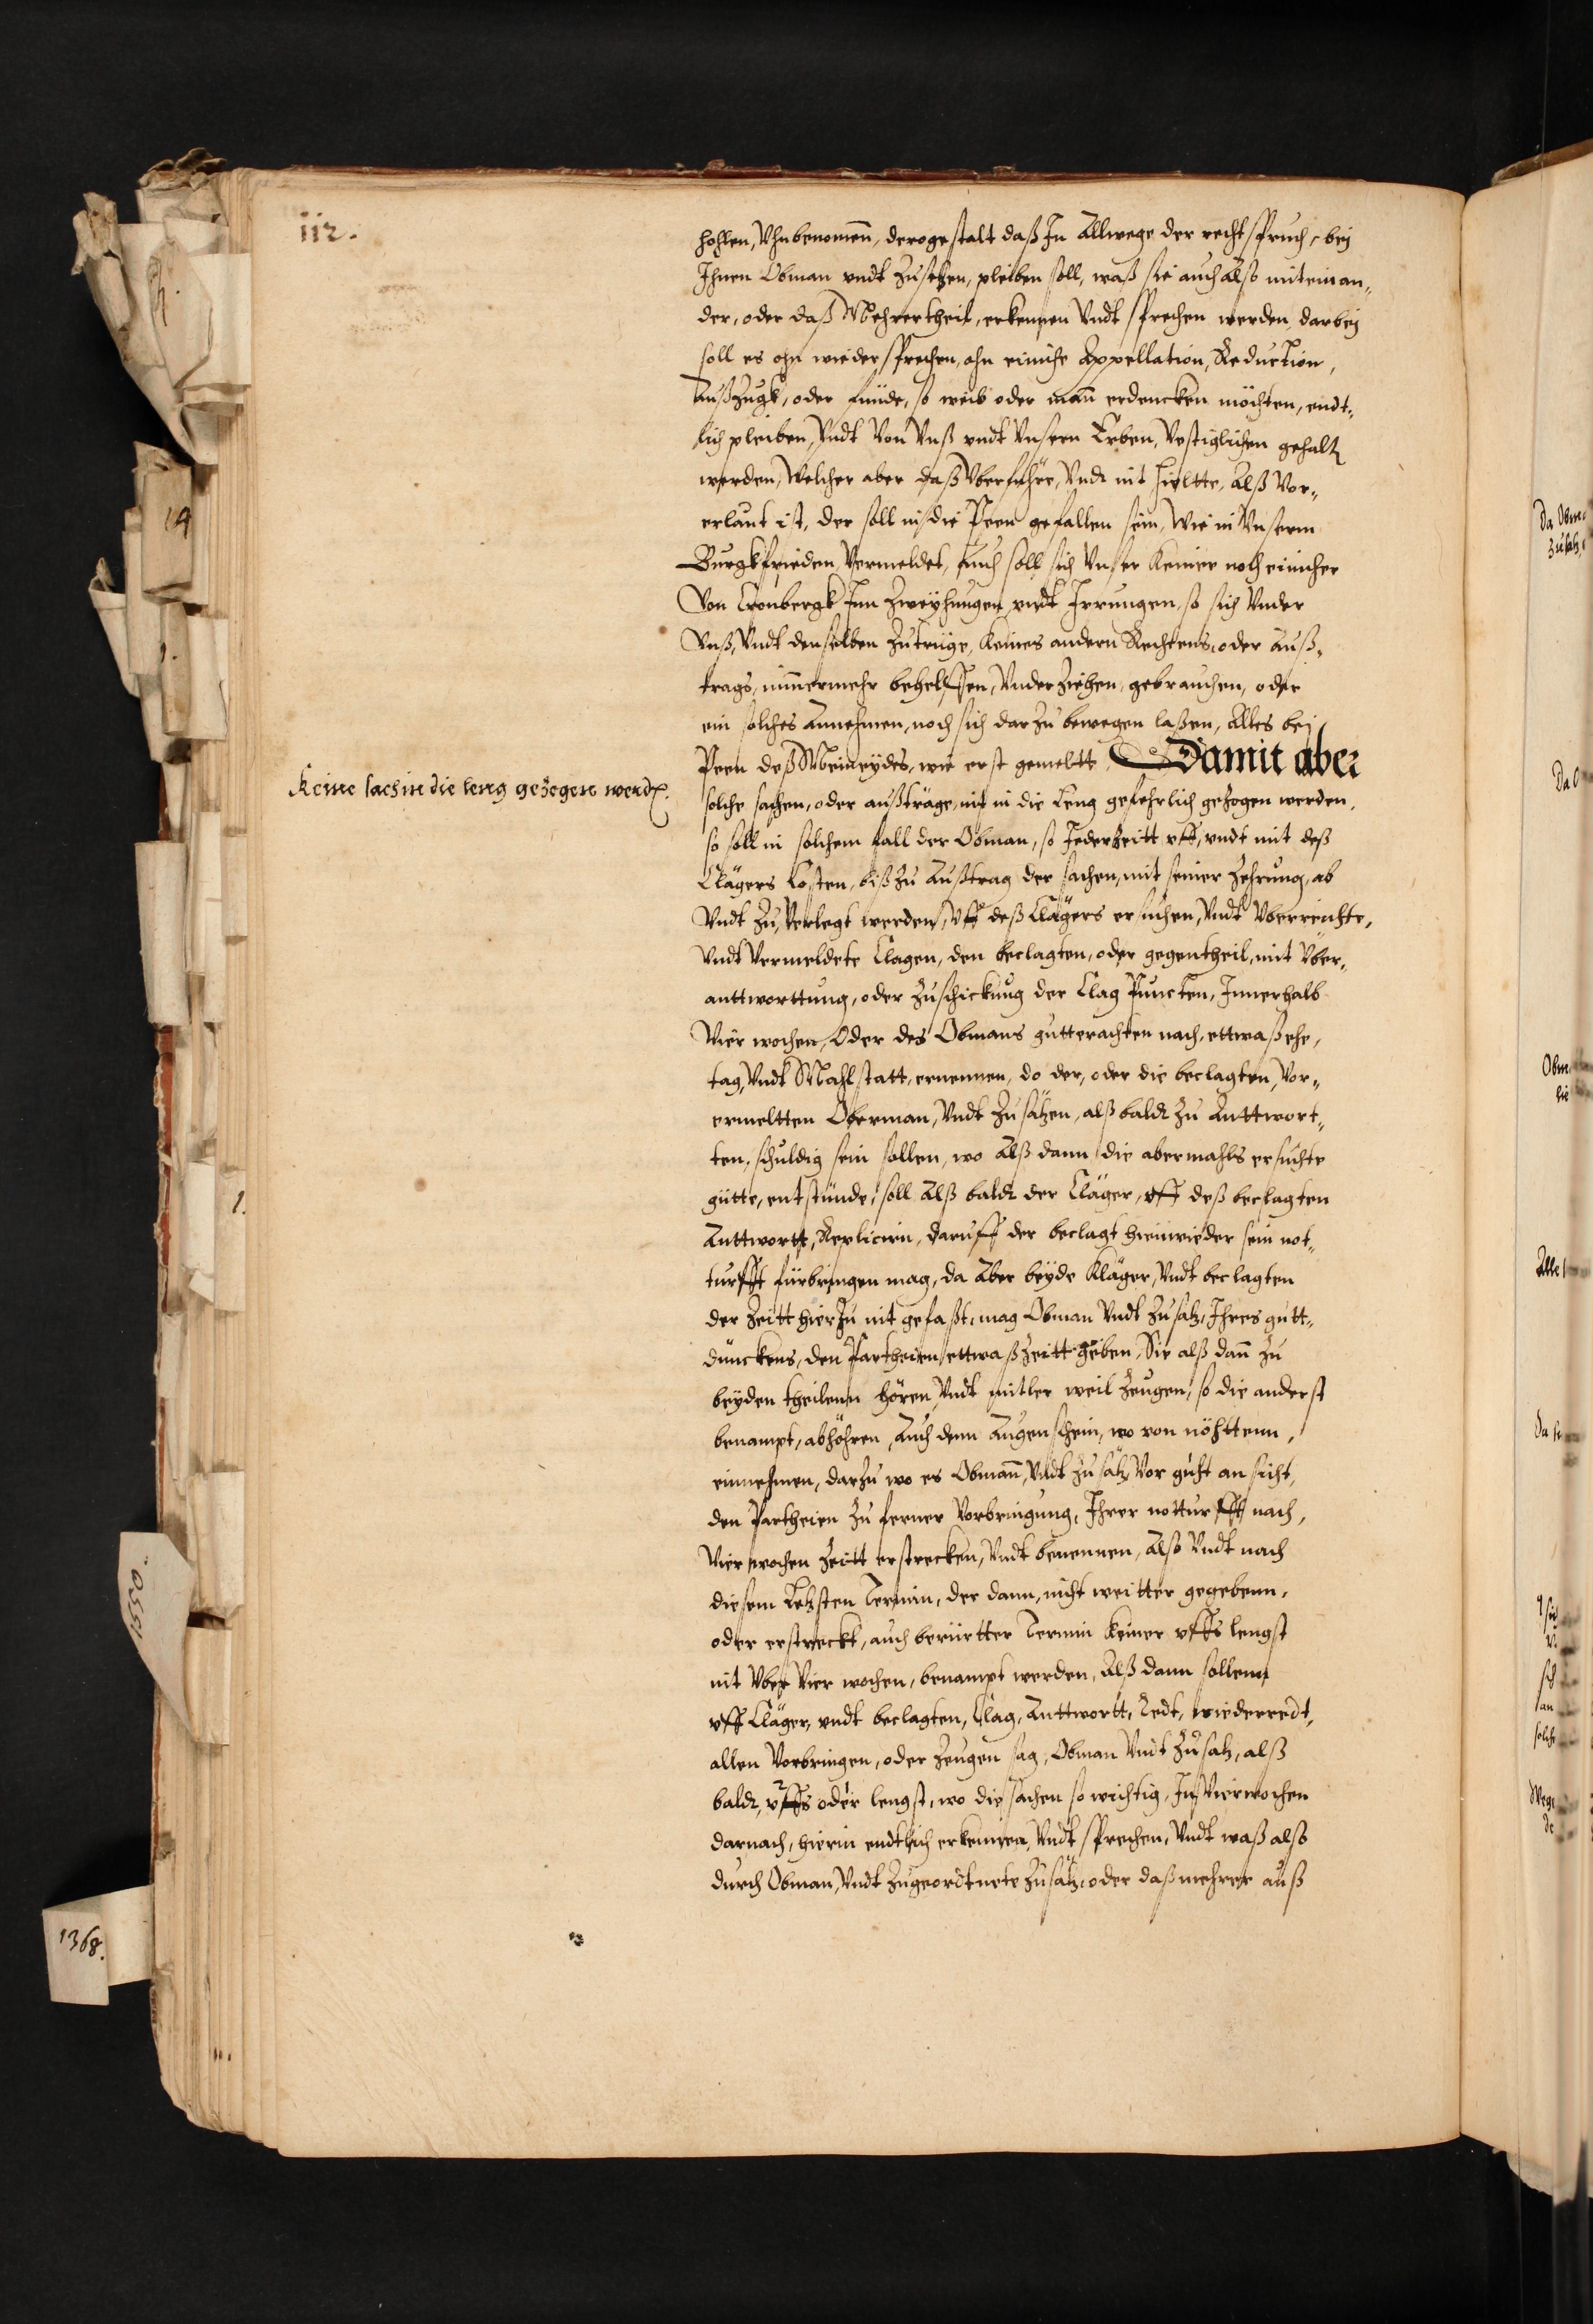 112.
hohlen, Vhnbenomen, derogestalt daß In Allwege der rechtspruch, bej
Ihnen Obman vndt Zusetzen, pleiben soll, waß sie auch Also miteinan„
der, oder daß Mehrertheil, erkennen Vndt sprechen werden darbej
soll es ohn wiedersprechen, ohn einiche Appellation, Reduction,
Außzugk, oder fünde, so weib oder man erdencken möchten, endt„
lich pleiben, Vndt Von Vnß vndt Vnsern Erben, Vestiglichen gehalten
werden, Welcher aber daß Vberführe, Vndt nit hieltte, Alß Vor„
erlaut ist, der soll in die Peen gefallen sein, Wie in Vnserm
Burgkfrieden Vermeldet, Auch soll sich Vnser Keiner noch einicher
Von Cronbergk Inn Zweyhungen vndt Irrungen, so sich Vnder
Vnß, Vndt denselben Zutrüge, Keines andern Rechtens, oder Auß„
trags, nimmermehr behelffen, Vnderziehen, gebrauchen, oder
ein solches Annehmen, noch sich darzu bewegen laßen, Alles bej
Peen deß Meineydes, wie erst gemeltt. Damit aber
Keine sach in die leng gezogen werden.
solche sachen, oder außträge, nit in die Leng gefehrlich gezogen werden,
so soll in solchem fall der Obman, so Jederzeitt vff, vndt mit deß
Clägers Costen, biß zu Außtrag der sachen, mit seiner Zehrung, ab
Vndt Zu, Verlegt werden, Vff deß Clägers ersuchen, Vndt Vberreichte,
Vndt Vermeldete Clagen, den beclagten, oder gegentheil, mit Vber„
anttworttung, oder Zuschickung der Clag Puncten, Innerhalb
Vier wochen, Oder des Obmans gutterachten nach, ettwaß ehe,
tag, Vndt Mahlstatt, ernennen, do der, oder die beclagten, Vor„
ermeltten Oberman, Vndt Zusätzen, alß baldt zu Anttwort„
ten, schuldig sein sollen, wo Alß dann die abermahls ersuchte
gütte, entstünde, soll Alß baldt der Cläger, vff deß beclagten
Anttwortt, Replicirn, daruff der beclagt hienwieder sein not„
turfft fürbringen mag, da Aber beyde Kläger, Vndt beclagten
der Zeitt hierzu nit gefaßt, mag Obman Vndt Zusatz, Ihres gutt„
dünckens, den Partheien ettwaß Zeitt geben, Sie alß dan zu
beyden theilenn hören, Vndt mitler weil Zeugen, so die anderst
benampt, abhöhren, Auch denn Augenschein, wo von nöhttenn,
einnehmen, darzu wo es Obman, Vndt Zusätz Vor guht ansicht,
den Partheien zu ferner Vorbringung, Ihrer notturfft nach,
Vier wochen Zeitt erstrecken, Vndt benennen, Also Vndt nach
diesem Letzsten Termin, der dann, nicht weitter gegebenn,
oder erstreckt, auch berürtter Termin Keiner vffs lengst
nit Vber Vier wochen, benampt werden, Alß dann sollenn
vff Cläger, vndt beclagten, Clag, Anttwortt, Redt, wiederredt,
allen Vorbringen, oder Zeugen sag, Obman Vndt Zusatz, alß
baldt, vffs oder lengst, wo die sachen so wichtig, In Vierwochen
darnach, hierin endtlich erkennen, Vndt sprechen, Vndt waß also
durch Obman, Vndt Zugeordtnete Zusätz, oder daß mehrer auß
14
1.
1550.
1368.